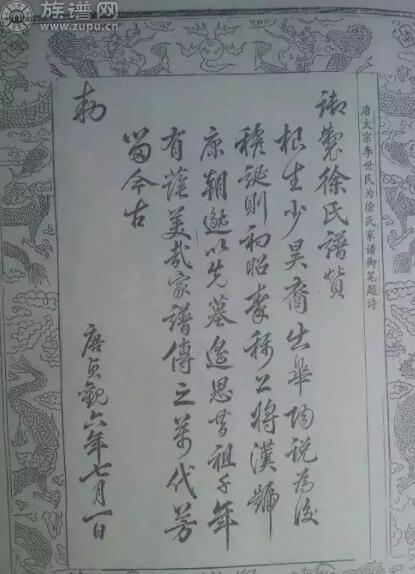 族谱网
www.zupu.cn
唐太宗李世民为徐氏家谱御笔题诗
御製徐氏譜贊
根生少昊裔出皋陶說为後
誕則初昭稱上將漢號
康朝以先墓遥思昔祖千年
有美哉家譜傳之萬代芳
留今古
勅
唐貞觀六年七月一日